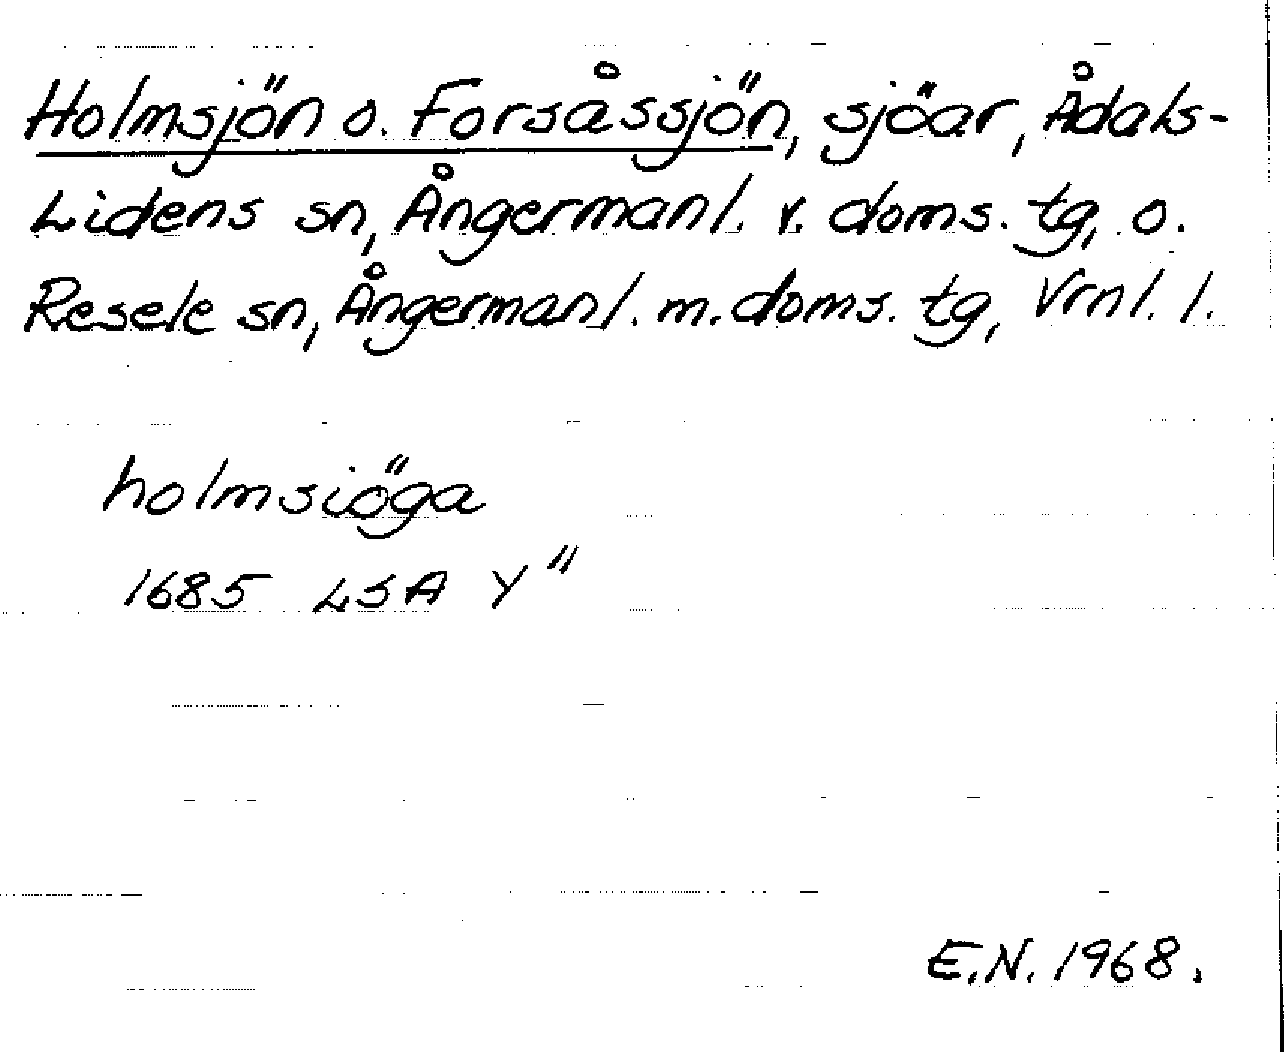 Holmsjön o. Forsåssjön, sjöar, Ådals-
Lidens sn, Ångermanl. v. doms. tg, o.
Resele sn, Ångermanl. m. doms. tg, Vrnl. l.
holmsiöga
1685 LSA Y"
E.N. 1968.